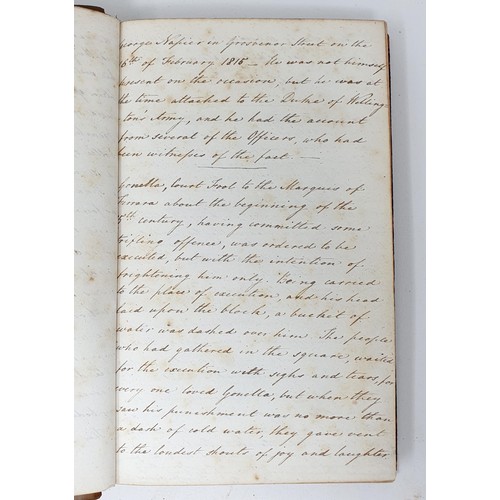 George Napier in Grosvenor Street on the
6th of February 1815 — He was not himself
present on the occasion, but he was at
the time attached to the Duke of Welling-
ton's Army, and he had the account
from several of the Officers, who had
been witnesses of the fact. —
Gonella, Court Fool to the Marques of
Ferrara about the beginning of the
5th century, having committed some
trifling offence, was ordered to be
executed, but with the intention of
frightening him only. Being carried
to the place of execution, and his head
laid upon the block, a bucket of
water was dashed over him. The people
who had gathered in the square, waited
for the execution with sighs and tears, for
every one loved Gonella, but when they
saw his punishment was no more than
a dash of cold water, they gave vent
to the loudest shouts of joy and laughter